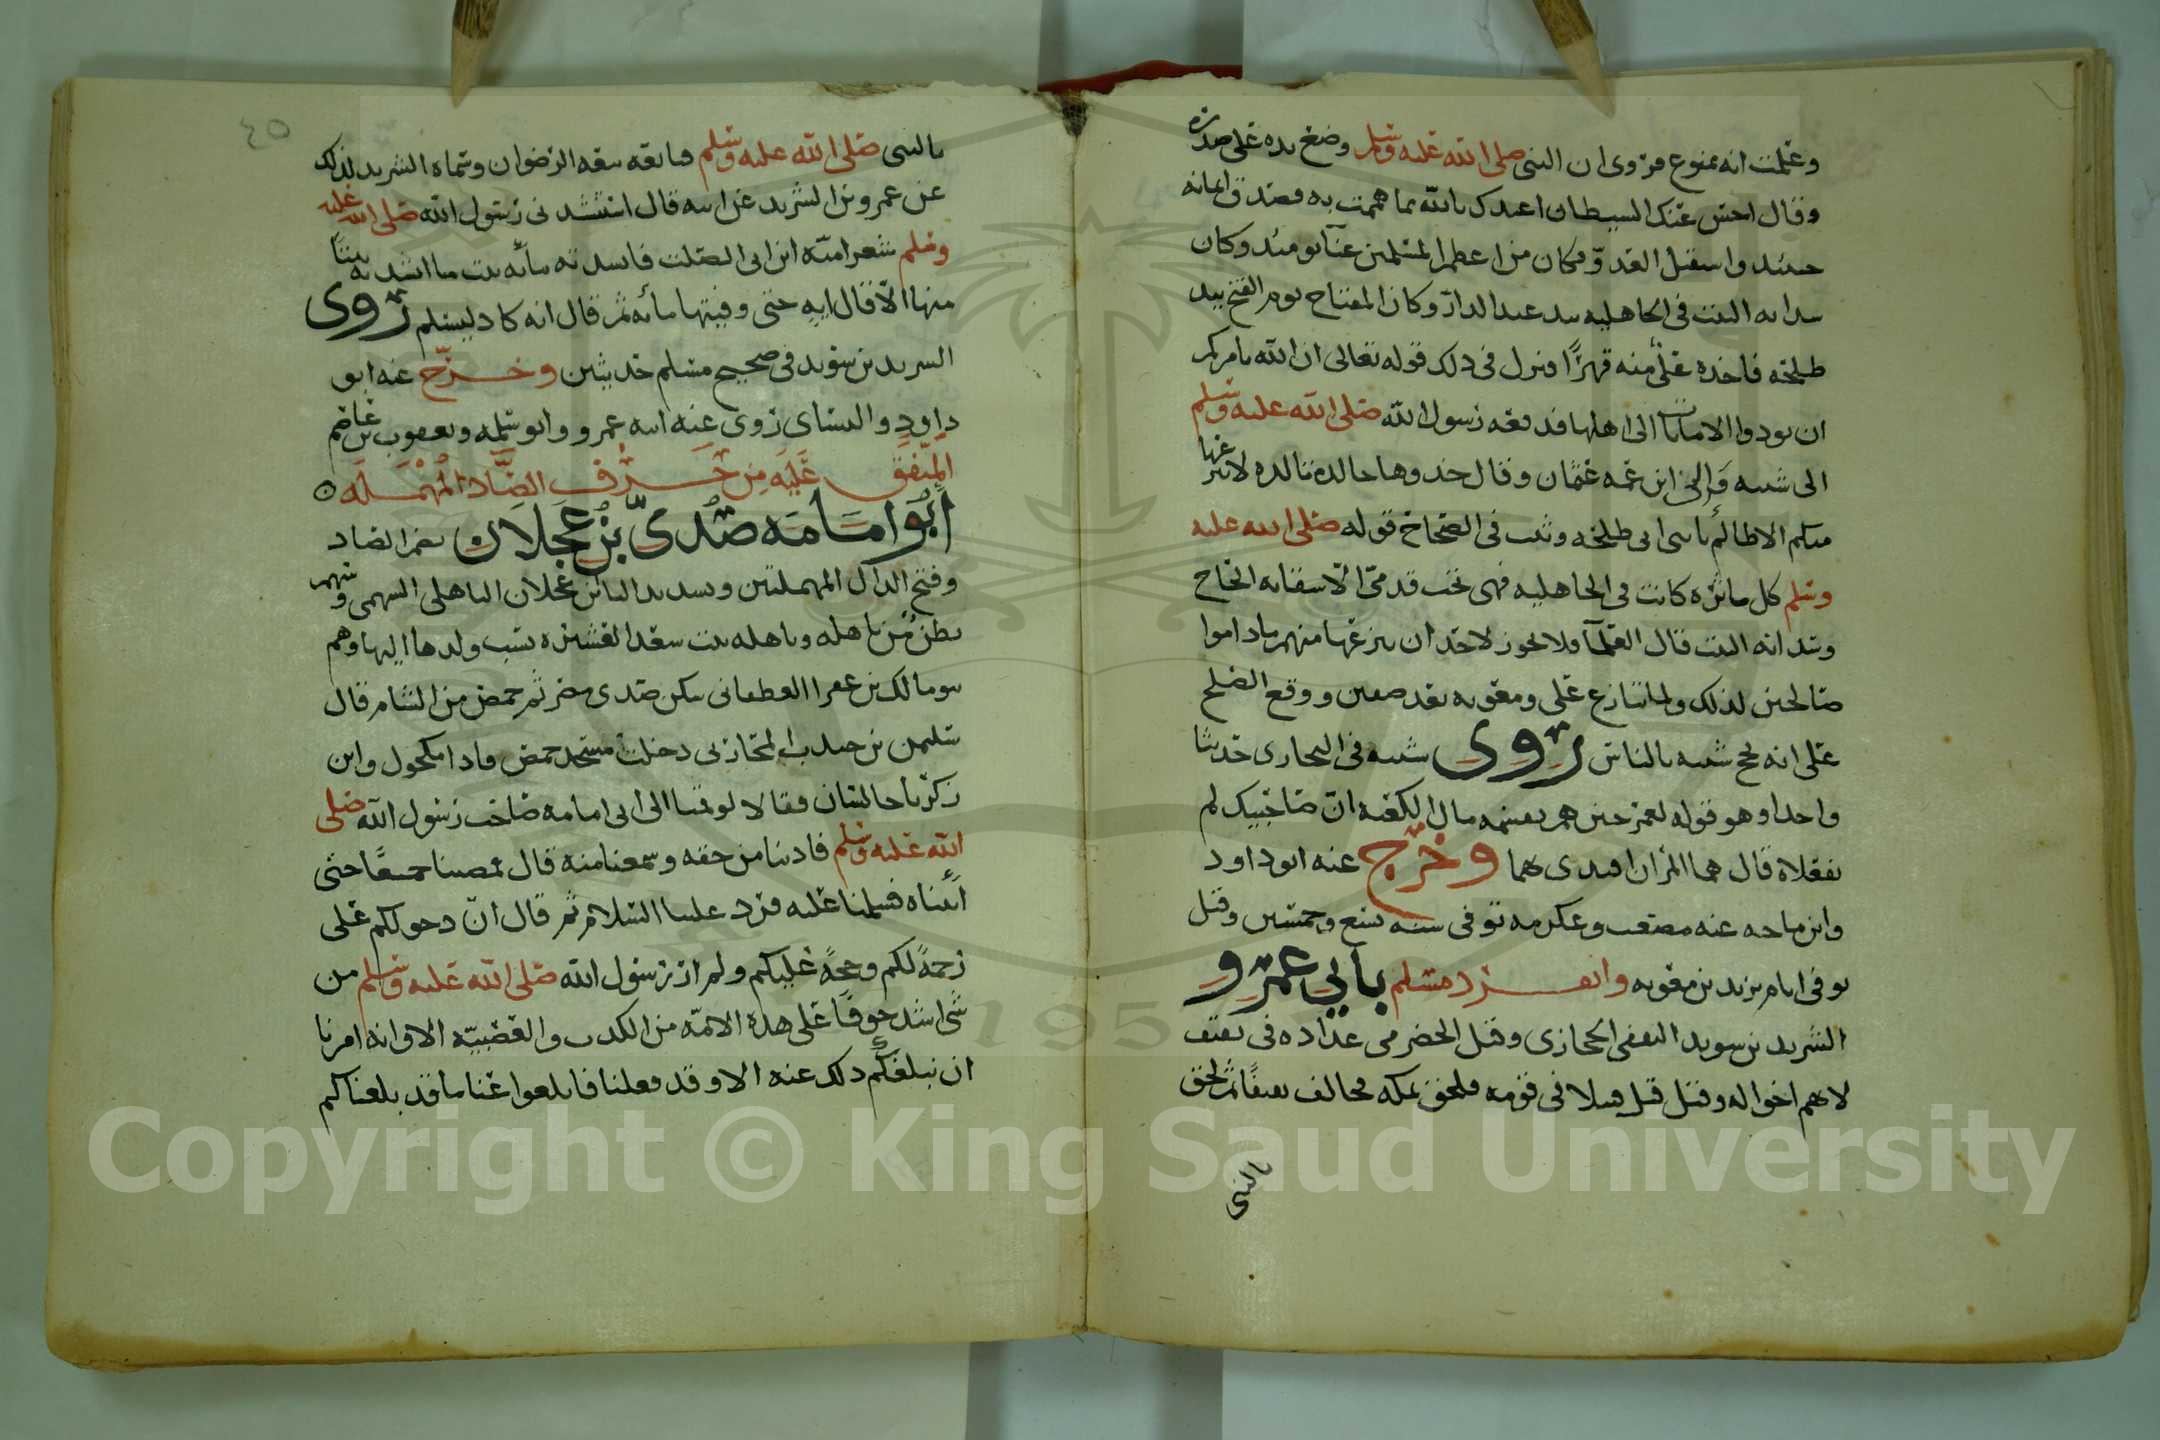 وعلمت انه ممنوع فروى ان النبي صلى الله عليه وسلم وضع يده على صدره
وقال اخس عنك الشيطان اعيذك بالله مما هممت به فصدق ايمانه
حينئذ واستقبل العدو فكان من اعظم المسلمين عنآ يومئذ وكان
سدانه البيت في الجاهليه بيد عبد الدار وكان المفتاح يوم الفتح بيد
طلحته فاخذه علي منه قهرًا فنزل في ذلك قوله تعالى ان الله يامركم
ان تودوا الامانات الى اهلها فدفعه رسول الله صلى الله عليه وسلم
الى شيبه والى ابن عمه عثمان وقال خذوها خالده تالده لا ينزعها
منكم الا ظالم يا بني ابي طلحه وثبت في الصحاح قوله صلى الله عليه
وسلم كل ماثره كانت في الجاهليه فهي تحت قدمي الا سقايه الحاج
وسدانه البيت قال العلمآ ولا يجوز لاحد ان ينزعها منهم ما داموا
صالحين لذلك ولما تنازع علي ومعويه بعد صفين ووقع الصلح
على انه يحج شيبه بالناس روى شيبه في البخاري حديثا
واحدا وهو قوله لعمر حين هم بقسمه مال الكعبه ان صاحبيك لم
يفعلاه قال هما المرآن اقتدي بهما وخرج عنه ابو داود
وابن ماجه عنه مصعب وعكرمه توفي سنه تسع وخمسين وقيل
توفي ايام يزيد بن معويه وانفرد مسلم بابي عمرو
الشريد بن سويد الثقفي الحجازي وقيل الحضرمي عداده في ثقيف
لانهم اخواله وقيل قتل قتيلا في قومه فلحق بمكه فحالف ثقيفًا ثم لحق
بالنبي
٤٥
بالنبي صلى الله عليه وسلم فبايعه بيعه الرضوان وسماه الشريد لذلك
عن عمرو بن الشريد عن ابيه قال استنشدني رسول الله صلى الله عليه
وسلم شعر اميه ابن ابي الصلت فانشدته مائه بيت ما انشدته بيتا
منها الا قال ايهٍ حتى وفيتها مائه ثم قال انه كاد ليسلم روى
الشريد بن سويد في صحيح مسلم حديثين وخرج عنه ابو
داود والنسائي روى عنه ابنه عمرو وابو سلمه ويعقوب بن عاصم
المتفق عليه من حرف الصاد المهمله
ابو امامه صدي بن عجلان بضم الصاد
وفتح الدال المهملتين وتشديد اليا بن عجلان الباهلي السهمي وسهم
بطن من باهله وباهله بنت سعد العشيره نسب ولدها اليها وهم
بنو مالك بن عفر الغطفاني سكن صدي مصر ثم حمص من الشام قال
سليمن بن حبيب المحاربي دخلت مسجد حمص فاذا مكحول وابن
زكريا جالسان فقالا لو قمنا الى ابي امامه صاحب رسول الله صلى
الله عليه وسلم فادينا من حقه وسمعنا منه قال فمضينا جميعًا حتى
اتيناه فسلمنا عليه فرد علينا السلام ثم قال ان دخولكم علي
رحمهً لكم وحجهً عليكم ولم ار رسول الله صلى الله عليه وسلم من
شي اشد خوفًا على هذه الامه من الكذب والعصبيه الا وانه امرنا
ان نبلغكم ذلك عنه الا وقد فعلنا فابلغوا عنا ما قد بلغناكم